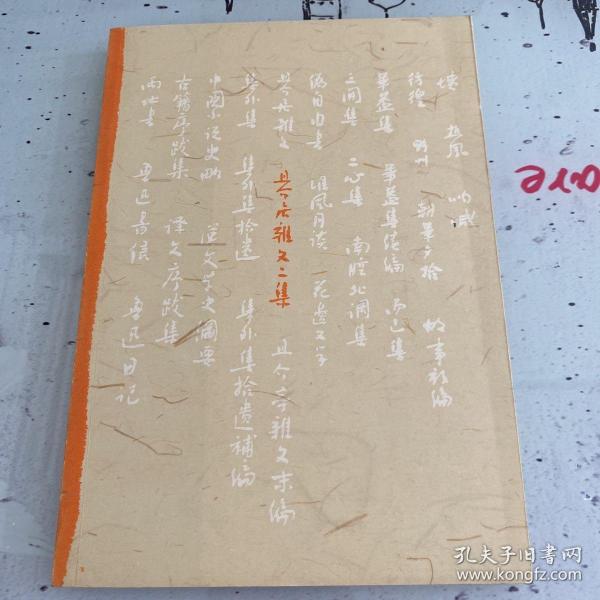 墳 热風 呐喊
彷徨 野草 朝華夕拾 故事新編
華蓋集 華蓋集续編 而已集
三閒集 二心集 南腔北调集
偽自由书 准風月谈 花邊文学
且介居雜文 且介居雜文二集 且介亭雜文末編
集外集 集外集拾遗 集外集拾遗補編
中國小说史略 汉文学史綱要
古籍序跋集 译文序跋集
两地书 鲁迅书信 鲁迅日记
孔夫子旧书网
www.kongfz.com